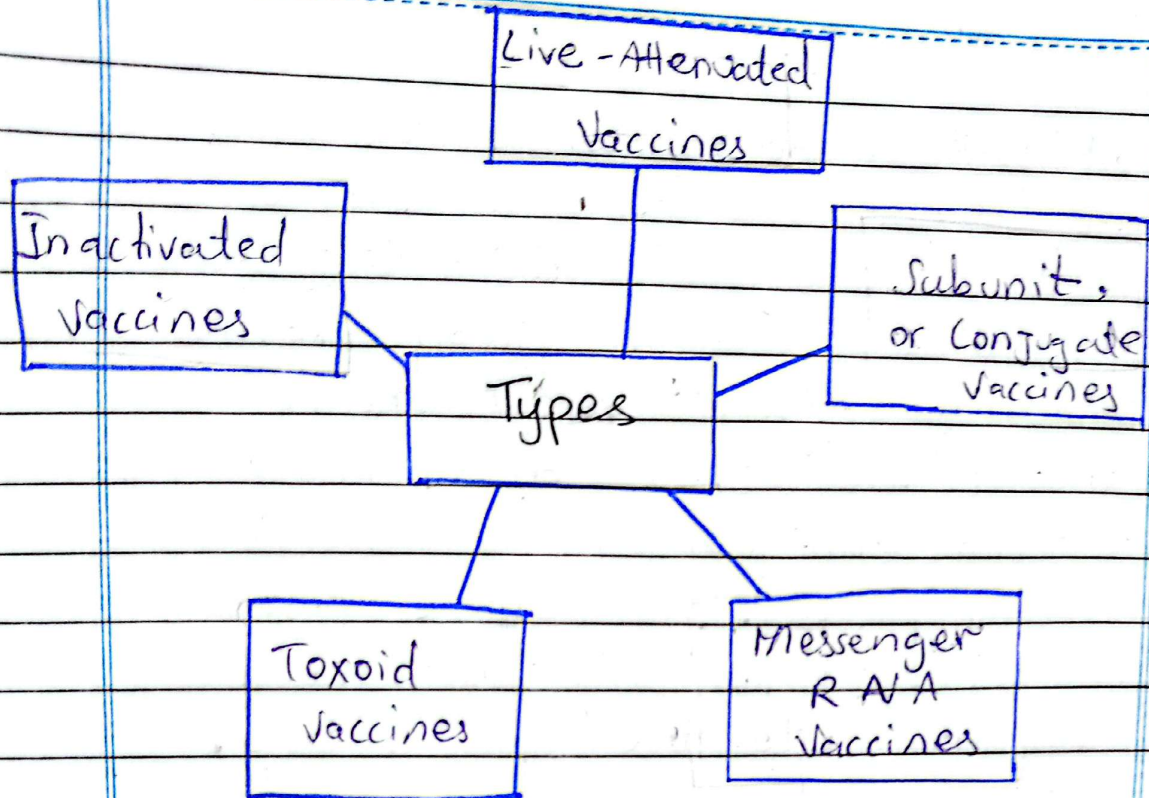 Live-Attenuated
Vaccines
Inactivated
Vaccines
Subunit,
or Conjugate
Vaccines
Types
Toxoid
Vaccines
Messenger
RNA
Vaccines